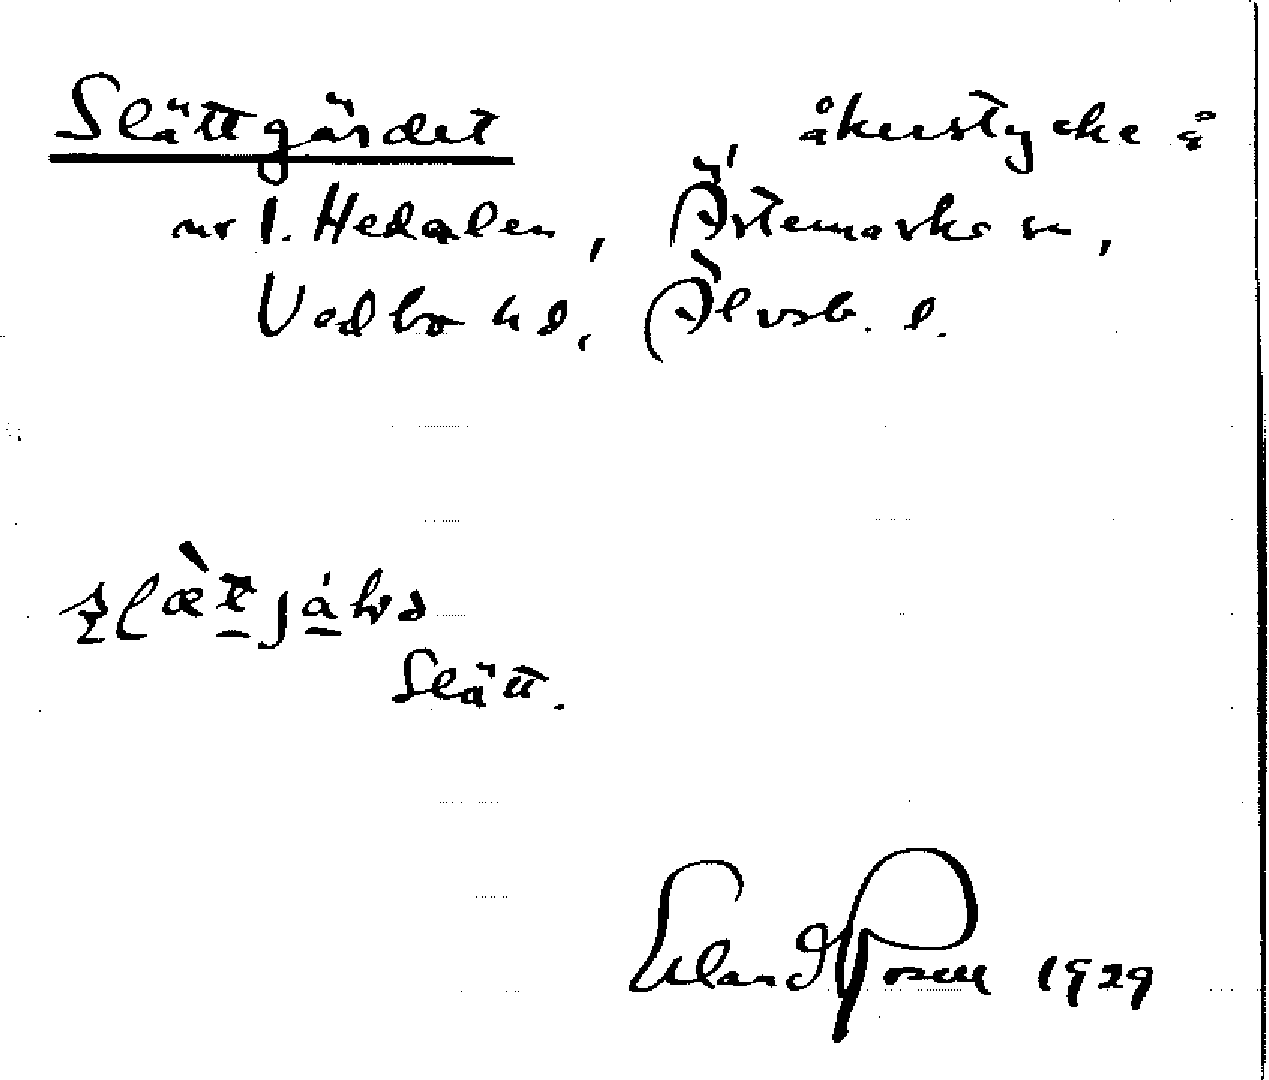 Slättgärdet åkerstycke å
nr 1. Hedalen, Ärtemarks sn,
Vedbo hd, Älvsb. l.
Slätt.
Erland Rosell 1929